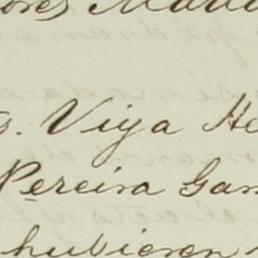 ores Ma
D. Viya He
Pereira Gar
hubieren